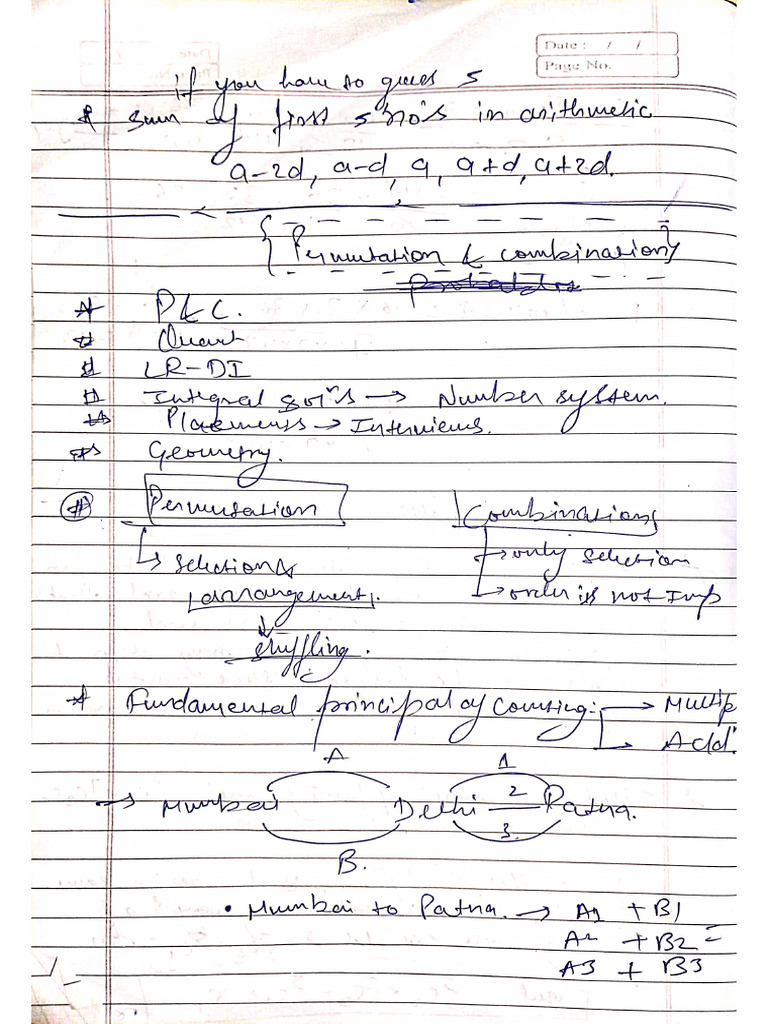 Date : / /
Page No.
if you have to guess 5
* Sum of first 5 no's in arithmetic
a-2d, a-d, a, a+d, a+2d.
{Permutation & combination}
* P&C.
# Quant
# LR-DI
# Integral sol^n's → Number system.
# Placements → Interviews.
# Geometry.
# Permutation Combinations
↳ selection & → only selection
arrangement. → order is not Imp
↓
shuffling.
* Fundamental principal of counting: → Multip
→ Add.
A 1
→ Mumbai Delhi 2 Patna.
B. 3.
• Mumbai to Patna. → A1 + B1
A2 + B2 =
A3 + B3